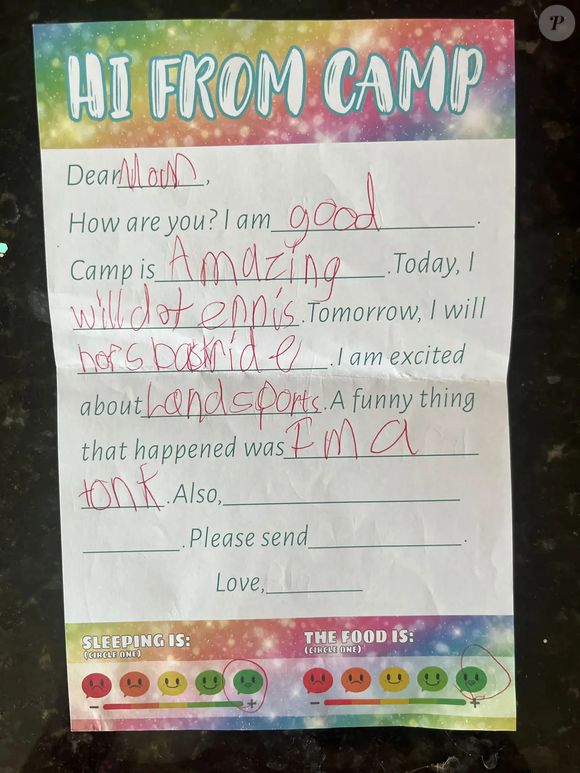 HI FROM CAMP
Dear Mom,
How are you? I am good.
Camp is Amazing. Today, I
will do tennis. Tomorrow, I will
horsbackride. I am excited
about Landsports. A funny thing
that happened was I'm a
tonk. Also,
. Please send .
Love,
SLEEPING IS: THE FOOD IS:
(CIRCLE ONE) (CIRCLE ONE)
- + - +
P